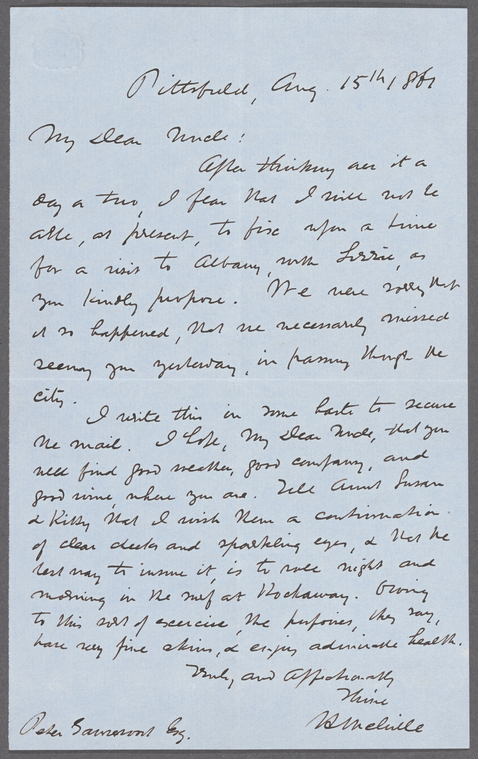 Pittsfield, Aug. 15th 1861
My Dear Uncle:
After thinking over it a
day or two, I fear that I will not be
able, at present, to fix upon a time
for a visit to Albany, with Lizzie, as
you kindly propose. We were sorry that
it so happened, that we necessarily missed
seeing you yesterday, in passing through the
city.
I write this in some haste to secure
the mail. I hope, My Dear Uncle, that you
will find good weather, good company, and
good wine, where you are. Tell Aunt Susan
& Kitty that I wish them a continuation
of clear cheeks and sparkling eyes, & that the
best way to insure it, is to roll night and
morning in the surf at Rockaway. Owing
to this sort of exercise, the porpoises, they say,
have very fine skins, & enjoy admirable health.
Truly and Affectionately
Thine
H Melville
Peter Gansevoort Esq.